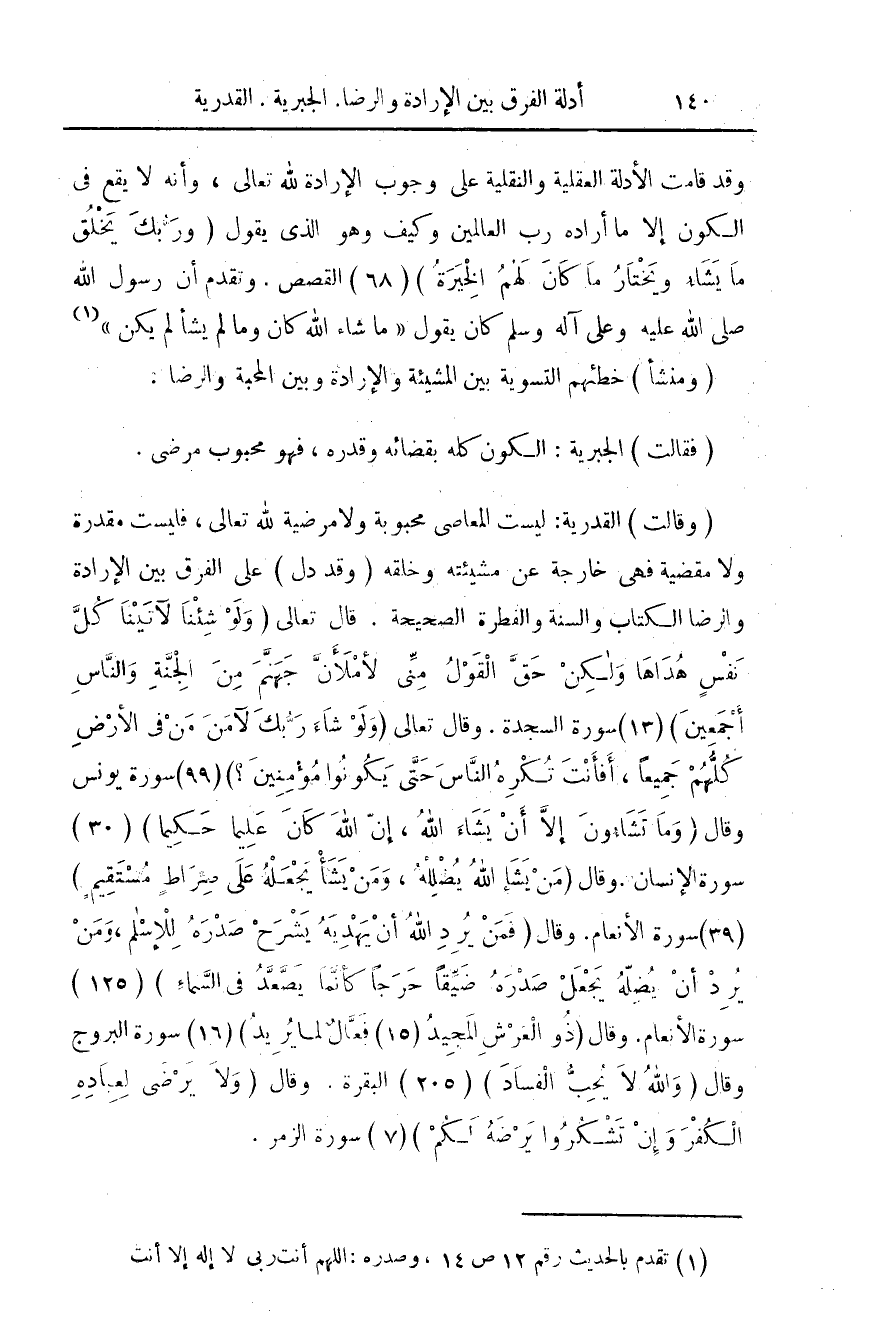 ١٤٠ أدلة الفرق بين الإرادة والرضا. الجبرية . القدرية
وقد قامت الأدلة العقلية والنقلية على وجوب الإرادة لله تعالى ، وأنه لا يقع فى
الـكون إلا ما أراده رب العالمين وكيف وهو الذى يقول ( ورَبُّكَ يَخْلُقُ
مَا يَشَاء ويَخْتَارُ مَا كَانَ لَهُمُ الْخِيَرَةُ ) ( ٦٨ ) القصص . وتقدم أن رسول الله
صلى الله عليه وعلى آله وسلم كان يقول « ما شاء الله كان وما لم يشأ لم يكن »(١)
( ومنشأ ) خطئهم التسوية بين المشيئة والإرادة وبين المحبة والرضا :
( فقالت ) الجبرية : الـكون كله بقضائه وقدره ، فهو محبوب مرضى .
( وقالت ) القدرية: ليست المعاصى محبوبة ولا مرضية لله تعالى ، فليست مقدرة
ولا مقضية فهى خارجة عن مشيئته وخلقه ( وقد دل ) على الفرق بين الإرادة
والرضا الـكتاب والسنة والفطرة الصحيحة . قال تعالى ( وَلَوْ شِئْنَا لَآتَيْنَا كُلَّ
نَفْسٍ هُدَاهَا وَلٰـكِنْ حَقَّ الْقَوْلُ مِنِّى لأَمْلَأَنَّ جَهَنَّمَ مِنَ الْجِنَّةِ وَالنَّاسِ
أَجْمَعِينَ ) (١٣) سورة السجدة . وقال تعالى (وَلَوْ شَاءَ رَبُّكَ لَآمَنَ مَنْ فى الأَرْضِ
كُلُّهُمْ جَمِيعاً ، أَفَأَنْتَ تُـكْرِهُ النَّاسَ حَتَّى يَكُونُوا مُؤْمِنِينَ ؟) (٩٩) سورة يونس
وقال ( وَمَا تَشَاءُونَ إِلاَّ أَنْ يَشَاءَ اللهُ ، إنّ اللهَ كَانَ عَلِيما حَـكِيما ) ( ٣٠ )
سورة الإنسان . وقال (مَنْ يَشَإِ اللهُ يُضْلِلْهُ ، وَمَنْ يَشَأْ يَجْعَلْهُ عَلَى صِرَاطٍ مُسْتَقِيمٍ )
(٣٩) سورة الأنعام. وقال ( فَمَنْ يُرِدِ اللهُ أنْ يَهْدِيَهُ يَشْرَحْ صَدْرَهُ لِلْإِسْلٰمِ ،وَمَنْ
يُرِدْ أنْ يُضِلَّهُ يَجْعَلْ صَدْرَهُ ضَيِّقاً حَرَجاً كَأَنَّمَا يَصَّعَّدُ فى السَّماءِ ) ( ١٢٥ )
سورة الأنعام. وقال (ذُو الْعَرْشِ الْمَجِيدُ (١٥) فَعَّالٌ لمـا يُرِيدُ ) (١٦) سورة البروج
وقال ( وَاللهُ لاَ يُحِبُّ الْفَسَادَ ) ( ٢٠٥ ) البقرة . وقال ( وَلاَ يَرْضَى لِعِبَادِهِ
الْـكُفْرَ وَإِنْ تَشْـكُرُوا يَرْضَهُ لَـكُمْ ) (٧) سورة الزمر .
(١) تقدم بالحديث رقم ١٢ ص ١٤ ، وصدره : اللهم أنت ربى لا إله إلا أنت